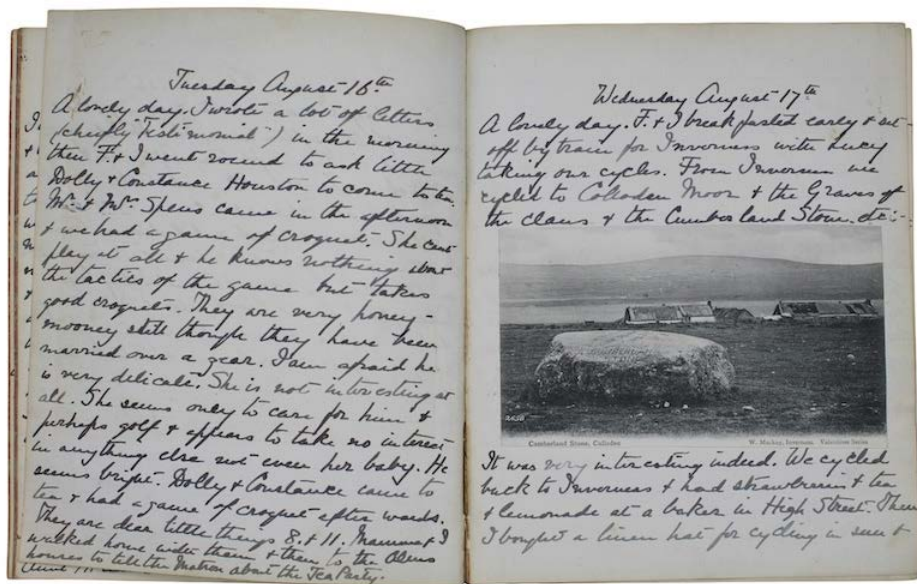 Tuesday August 16th
A lovely day. I wrote a lot of letters
(chiefly "Testimonial") in the morning
then F. & I went round to ask little
Dolly & Constance Houston to come to tea.
Mr. & Mrs. Spens came in the afternoon
& we had a game of croquet. She cant
play at all & he knows nothing about
the tactics of the game but takes
good croquets. They are very honey-
mooney still though they have been
married over a year. I am afraid he
is very delicate. She is not interesting at
all. She seems only to care for him &
perhaps golf & appears to take no interest
in anything else not even her baby. He
seems bright. Dolly & Constance came to
tea & had a game of croquet after wards.
They are dear little things 8. & 11. Mamma & I
walked home with them & then to the Alms
houses to tell the Matron about the Tea Party.
Wednesday August 17th
A lovely day. F. & I breakfasted early & set
off by train for Inverness with Lucy
taking our cycles. From Inverness we
cycled to Culloden Moor & the Graves of
the clans & the Cumberland Stone. etc:-
Cumberland Stone, Culloden
W. Mackay, Inverness. Valentines Series
It was very interesting indeed. We cycled
back to Inverness & had strawberries & tea
& lemonade at a baker in High Street. Then
I bought a linen hat for cycling in sun &